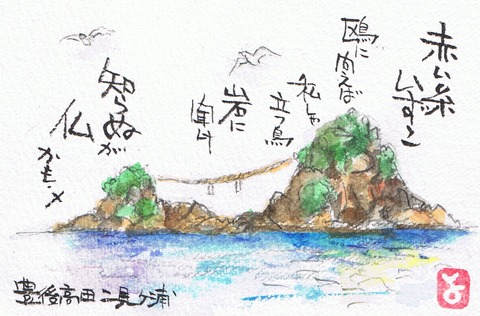 赤い糸
いずこ
鴎に問えば
私しゃ
立つ鳥
岩に
聞け
知らぬが
仏
かも・メ
豊後高田二見ケ浦